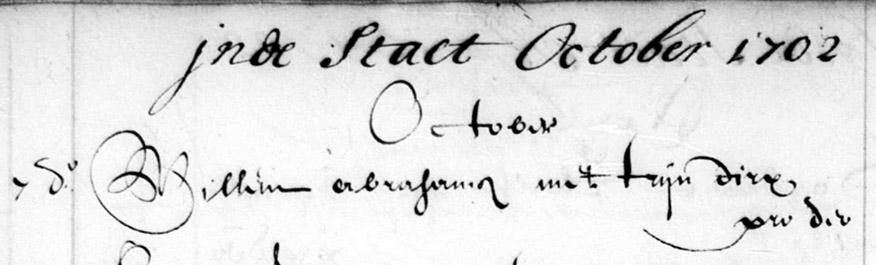 jnde Stact October 1702
October
7 d.o Willem abrahamsz met trijn dirx
pro deo